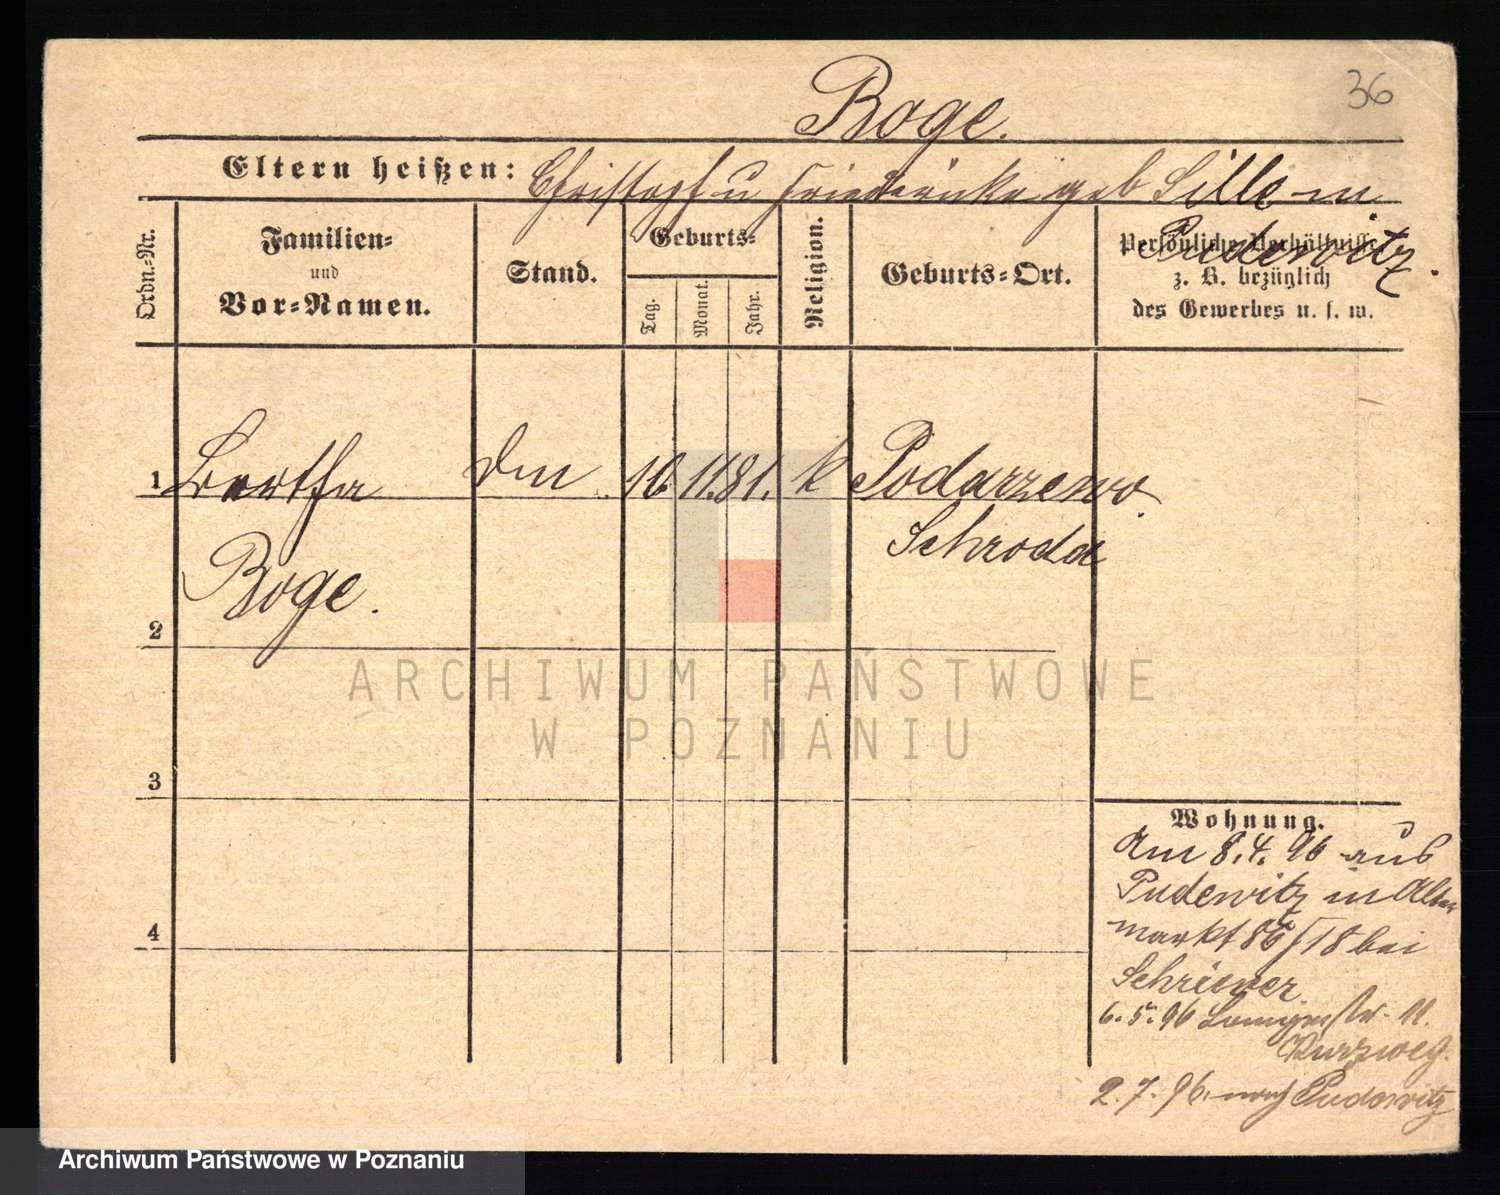 36
Boge.
Eltern heißen: Christoph u Friedericke geb Sille in
Pudewitz.
Ordn.-Nr.
Familien-
und
Vor-Namen.
Stand.
Geburts-
Tag.
Monat.
Jahr.
Religion.
Geburts-Ort.
Persönliche Verhältnisse
z. B. bezüglich
des Gewerbes u. s. w.
1 Bertha 10. 11. 81. k Podarzewo.
Schroda
Boge.
2
3
4
ARCHIWUM PAŃSTWOWE
W POZNANIU
Wohnung.
Am 8.4.96 aus
Pudewitz in Alten
markt 86/18 bei
6.5.96 11.
Kurzweg.
2.7.96. nach Pudewitz
Archiwum Państwowe w Poznaniu